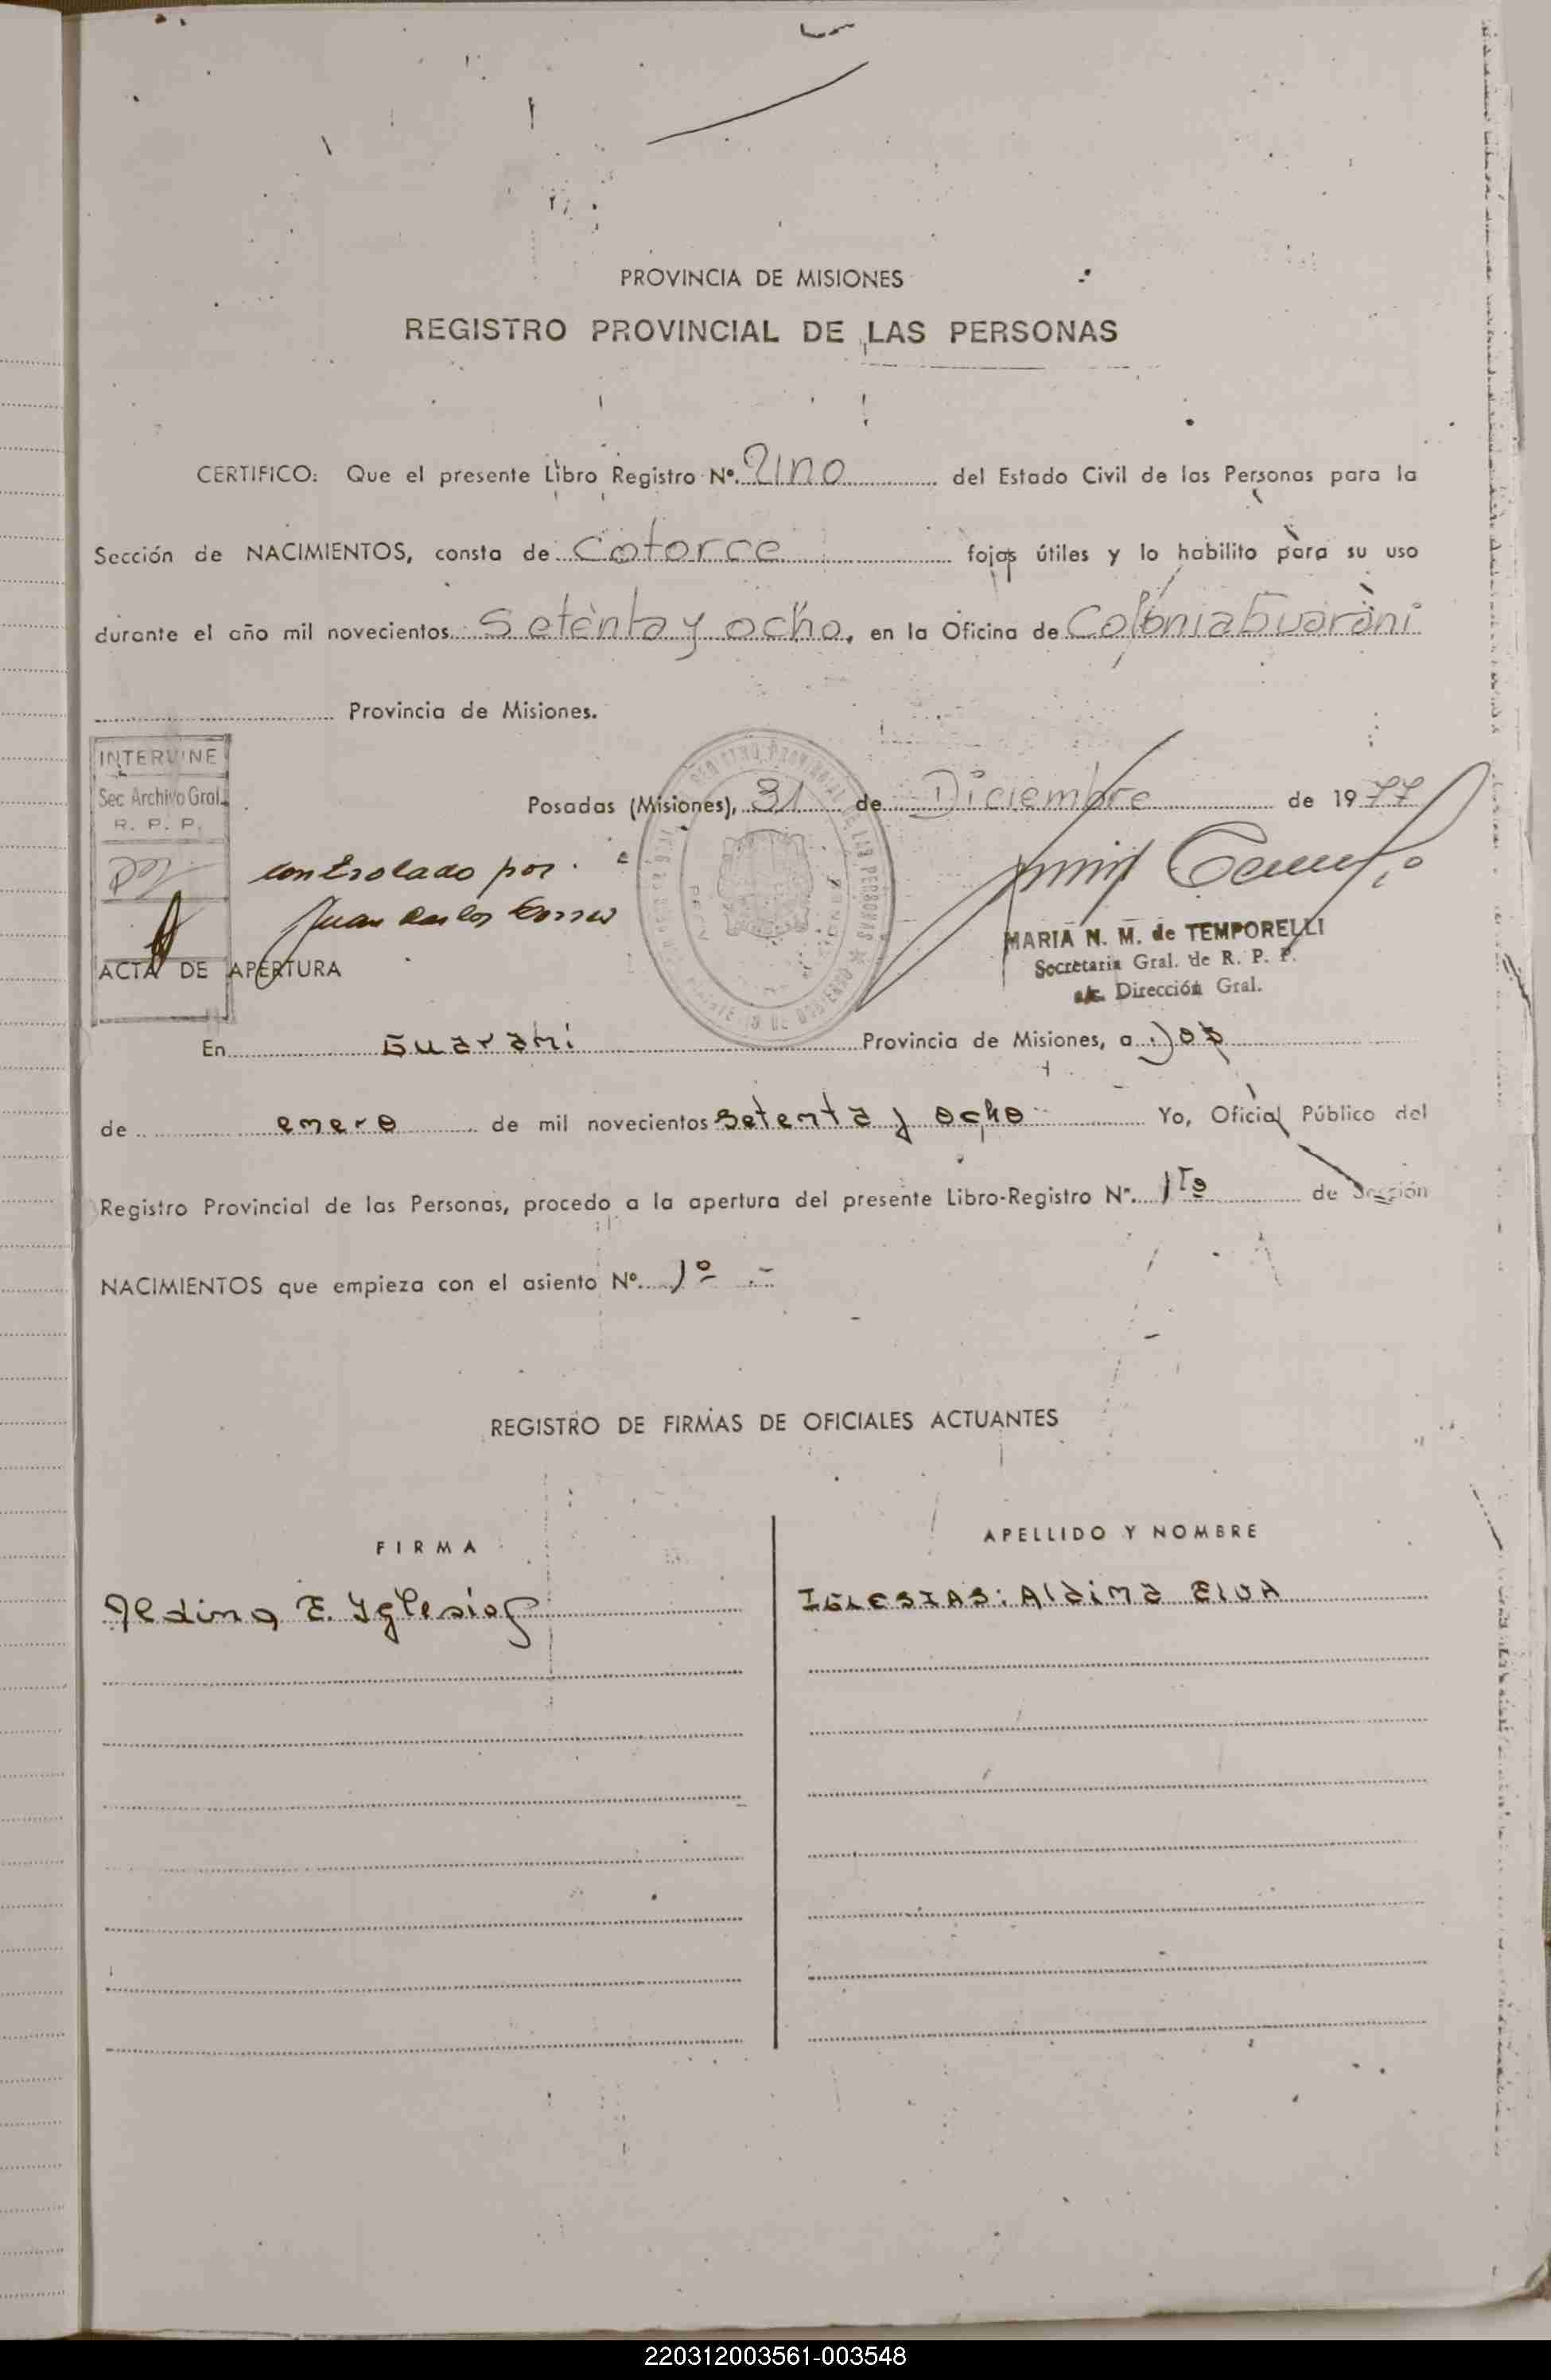 PROVINCIA DE MISIONES
REGISTRO PROVINCIAL DE LAS PERSONAS
CERTIFICO: Que el presente Libro Registro Nº. Uno del Estado Civil de las Personas para la
Sección de NACIMIENTOS, consta de Catorce fojas útiles y lo habilito para su uso
durante el año mil novecientos Setenta y ocho, en la Oficina de Colonia Guaraní
Provincia de Misiones.
INTERVINE
Sec Archivo Gral.
R. P. P.
Posadas (Misiones), 31 de Diciembre de 1977
controlado por
Juan Carlos
MARIA N. M. de TEMPORELLI
Secretaria Gral. de R. P. P.
a/c. Dirección Gral.
ACTA DE APERTURA
En Guarani Provincia de Misiones, a dos
de enero de mil novecientos setenta y ocho Yo, Oficial Público del
Registro Provincial de las Personas, procedo a la apertura del presente Libro-Registro Nº. 1ro de Sección
NACIMIENTOS que empieza con el asiento Nº. 1º .-
REGISTRO DE FIRMAS DE OFICIALES ACTUANTES
FIRMA
APELLIDO Y NOMBRE
Aldina E. Yglesias
IGLESIAS: Aldina ElVA
220312003561-003548